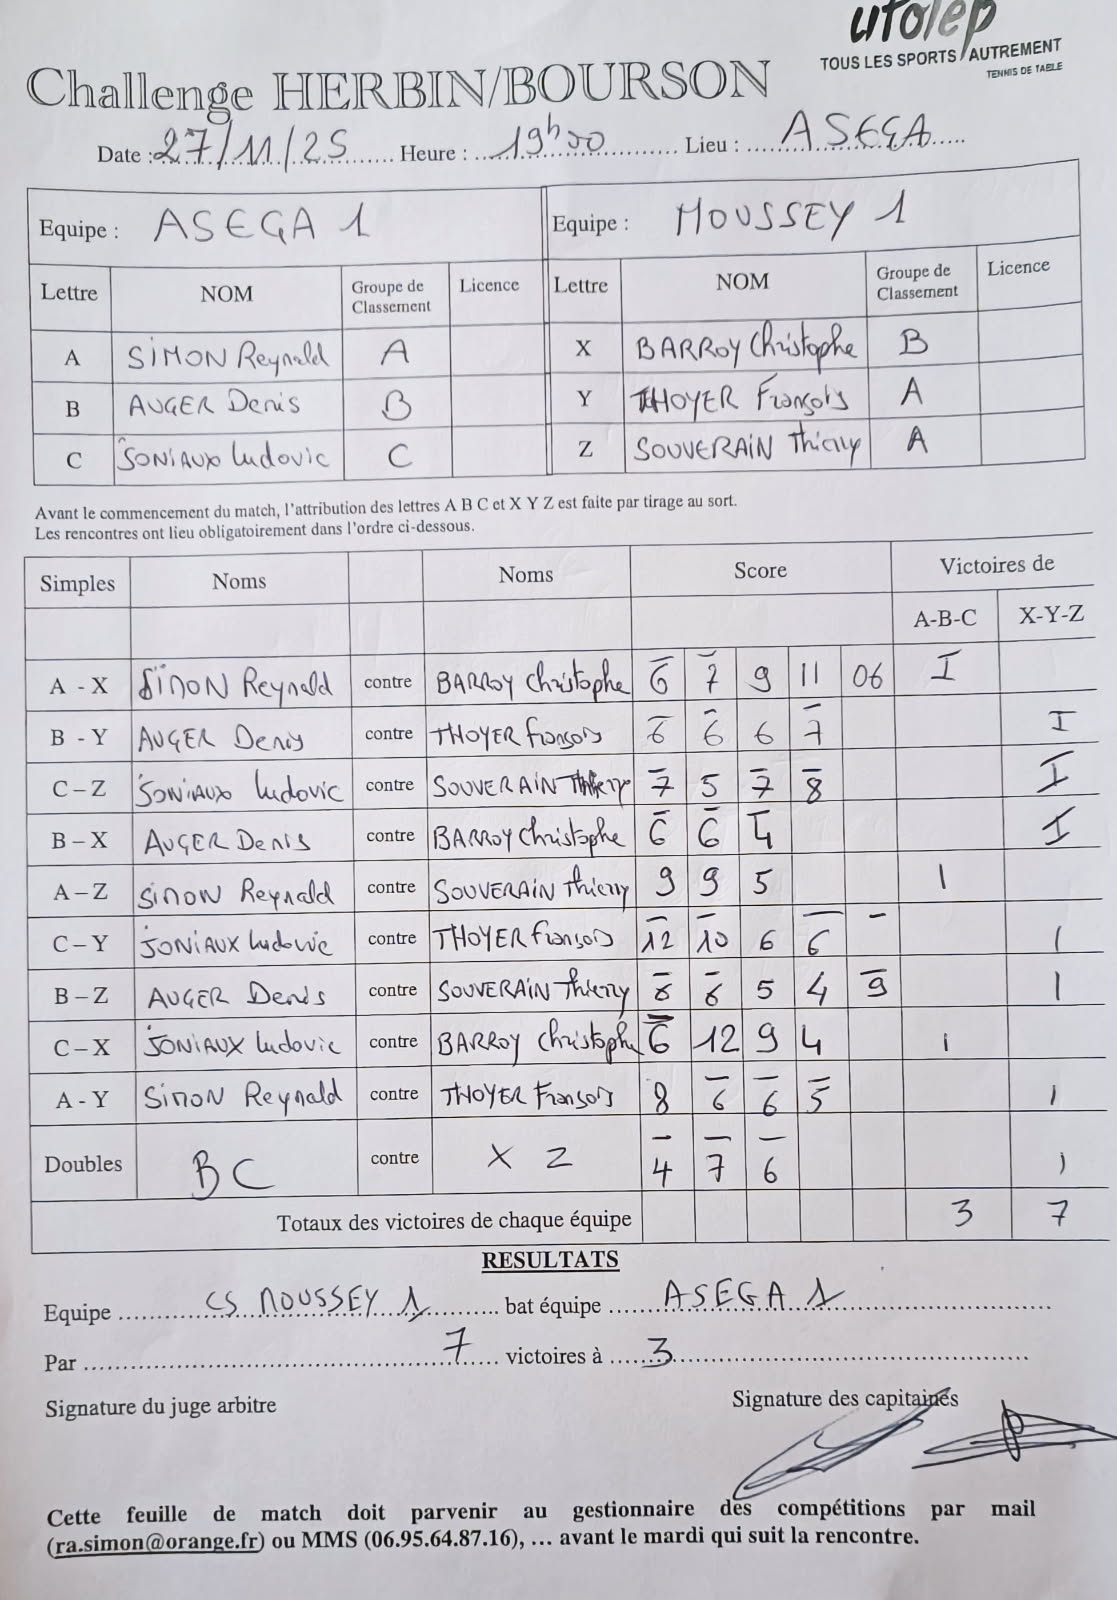 ufolep
TOUS LES SPORTS AUTREMENT
TENNIS DE TABLE
Challenge HERBIN/BOURSON
Date : 27/11/25 Heure : 19h00 Lieu : ASEGA
Equipe : ASEGA 1 Equipe : MOUSSEY 1
Lettre NOM Groupe de Classement Licence Lettre NOM Groupe de Classement Licence
A SIMON Reynald A X BARROY Christophe B
B AUGER Denis B Y THOYER François A
C JONIAUX Ludovic C Z SOUVERAIN Thierry A
Avant le commencement du match, l'attribution des lettres A B C et X Y Z est faite par tirage au sort.
Les rencontres ont lieu obligatoirement dans l'ordre ci-dessous.
Simples Noms Noms Score Victoires de
A-B-C X-Y-Z
A - X SIMON Reynald contre BARROY Christophe -6 -7 9 11 06 I
B - Y AUGER Denis contre THOYER François -6 -6 6 -7 I
C – Z JONIAUX Ludovic contre SOUVERAIN Thierry -7 5 -7 -8 I
B – X AUGER Denis contre BARROY Christophe -6 -6 -4 I
A – Z SIMON Reynald contre SOUVERAIN Thierry 9 9 5 I
C – Y JONIAUX Ludovic contre THOYER François -12 -10 6 -6 - I
B – Z AUGER Denis contre SOUVERAIN Thierry -8 -6 5 4 -9 I
C – X JONIAUX Ludovic contre BARROY Christophe -6 12 9 4 I
A - Y SIMON Reynald contre THOYER François 8 -6 -6 -5 I
Doubles BC contre X Z -4 -7 -6 I
Totaux des victoires de chaque équipe 3 7
RESULTATS
Equipe CS MOUSSEY 1 bat équipe ASEGA 1
Par 7 victoires à 3
Signature du juge arbitre Signature des capitaines
Cette feuille de match doit parvenir au gestionnaire des compétitions par mail
(ra.simon@orange.fr) ou MMS (06.95.64.87.16), … avant le mardi qui suit la rencontre.